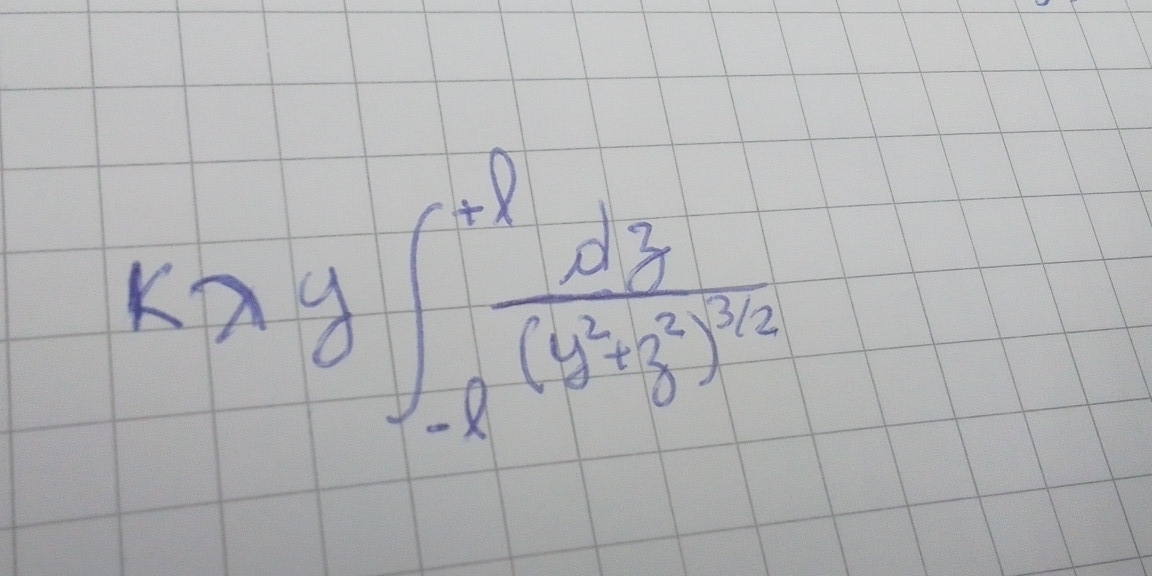 Kλy ∫_{-l}^{+l} dz/(y²+z²)^{3/2}